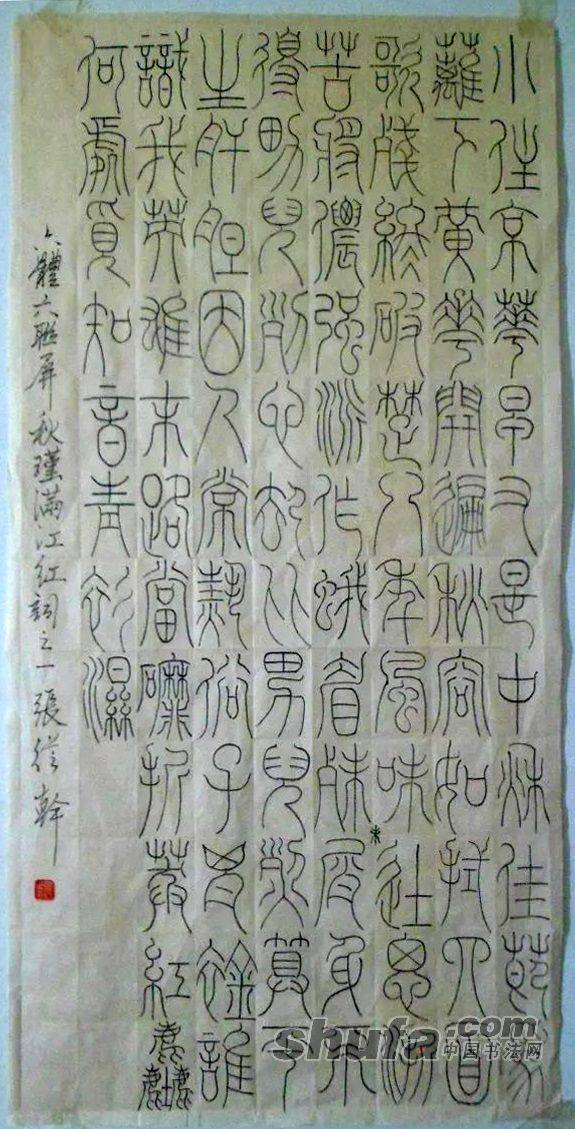 小住京華早又是中秋佳節為
籬下黃花開遍秋容如拭四面
歌殘終破楚八年風味徒思浙
苦將儂強派作蛾眉殊未屑身不
得男兒列心却比男兒烈算平
生肝膽因人常熱俗子胸襟誰
識我英雄末路當磨折莽紅塵
何處覓知音青衫濕
六體六聯屏 秋瑾滿江紅詞之一 張幹
shufa.com
中国书法网